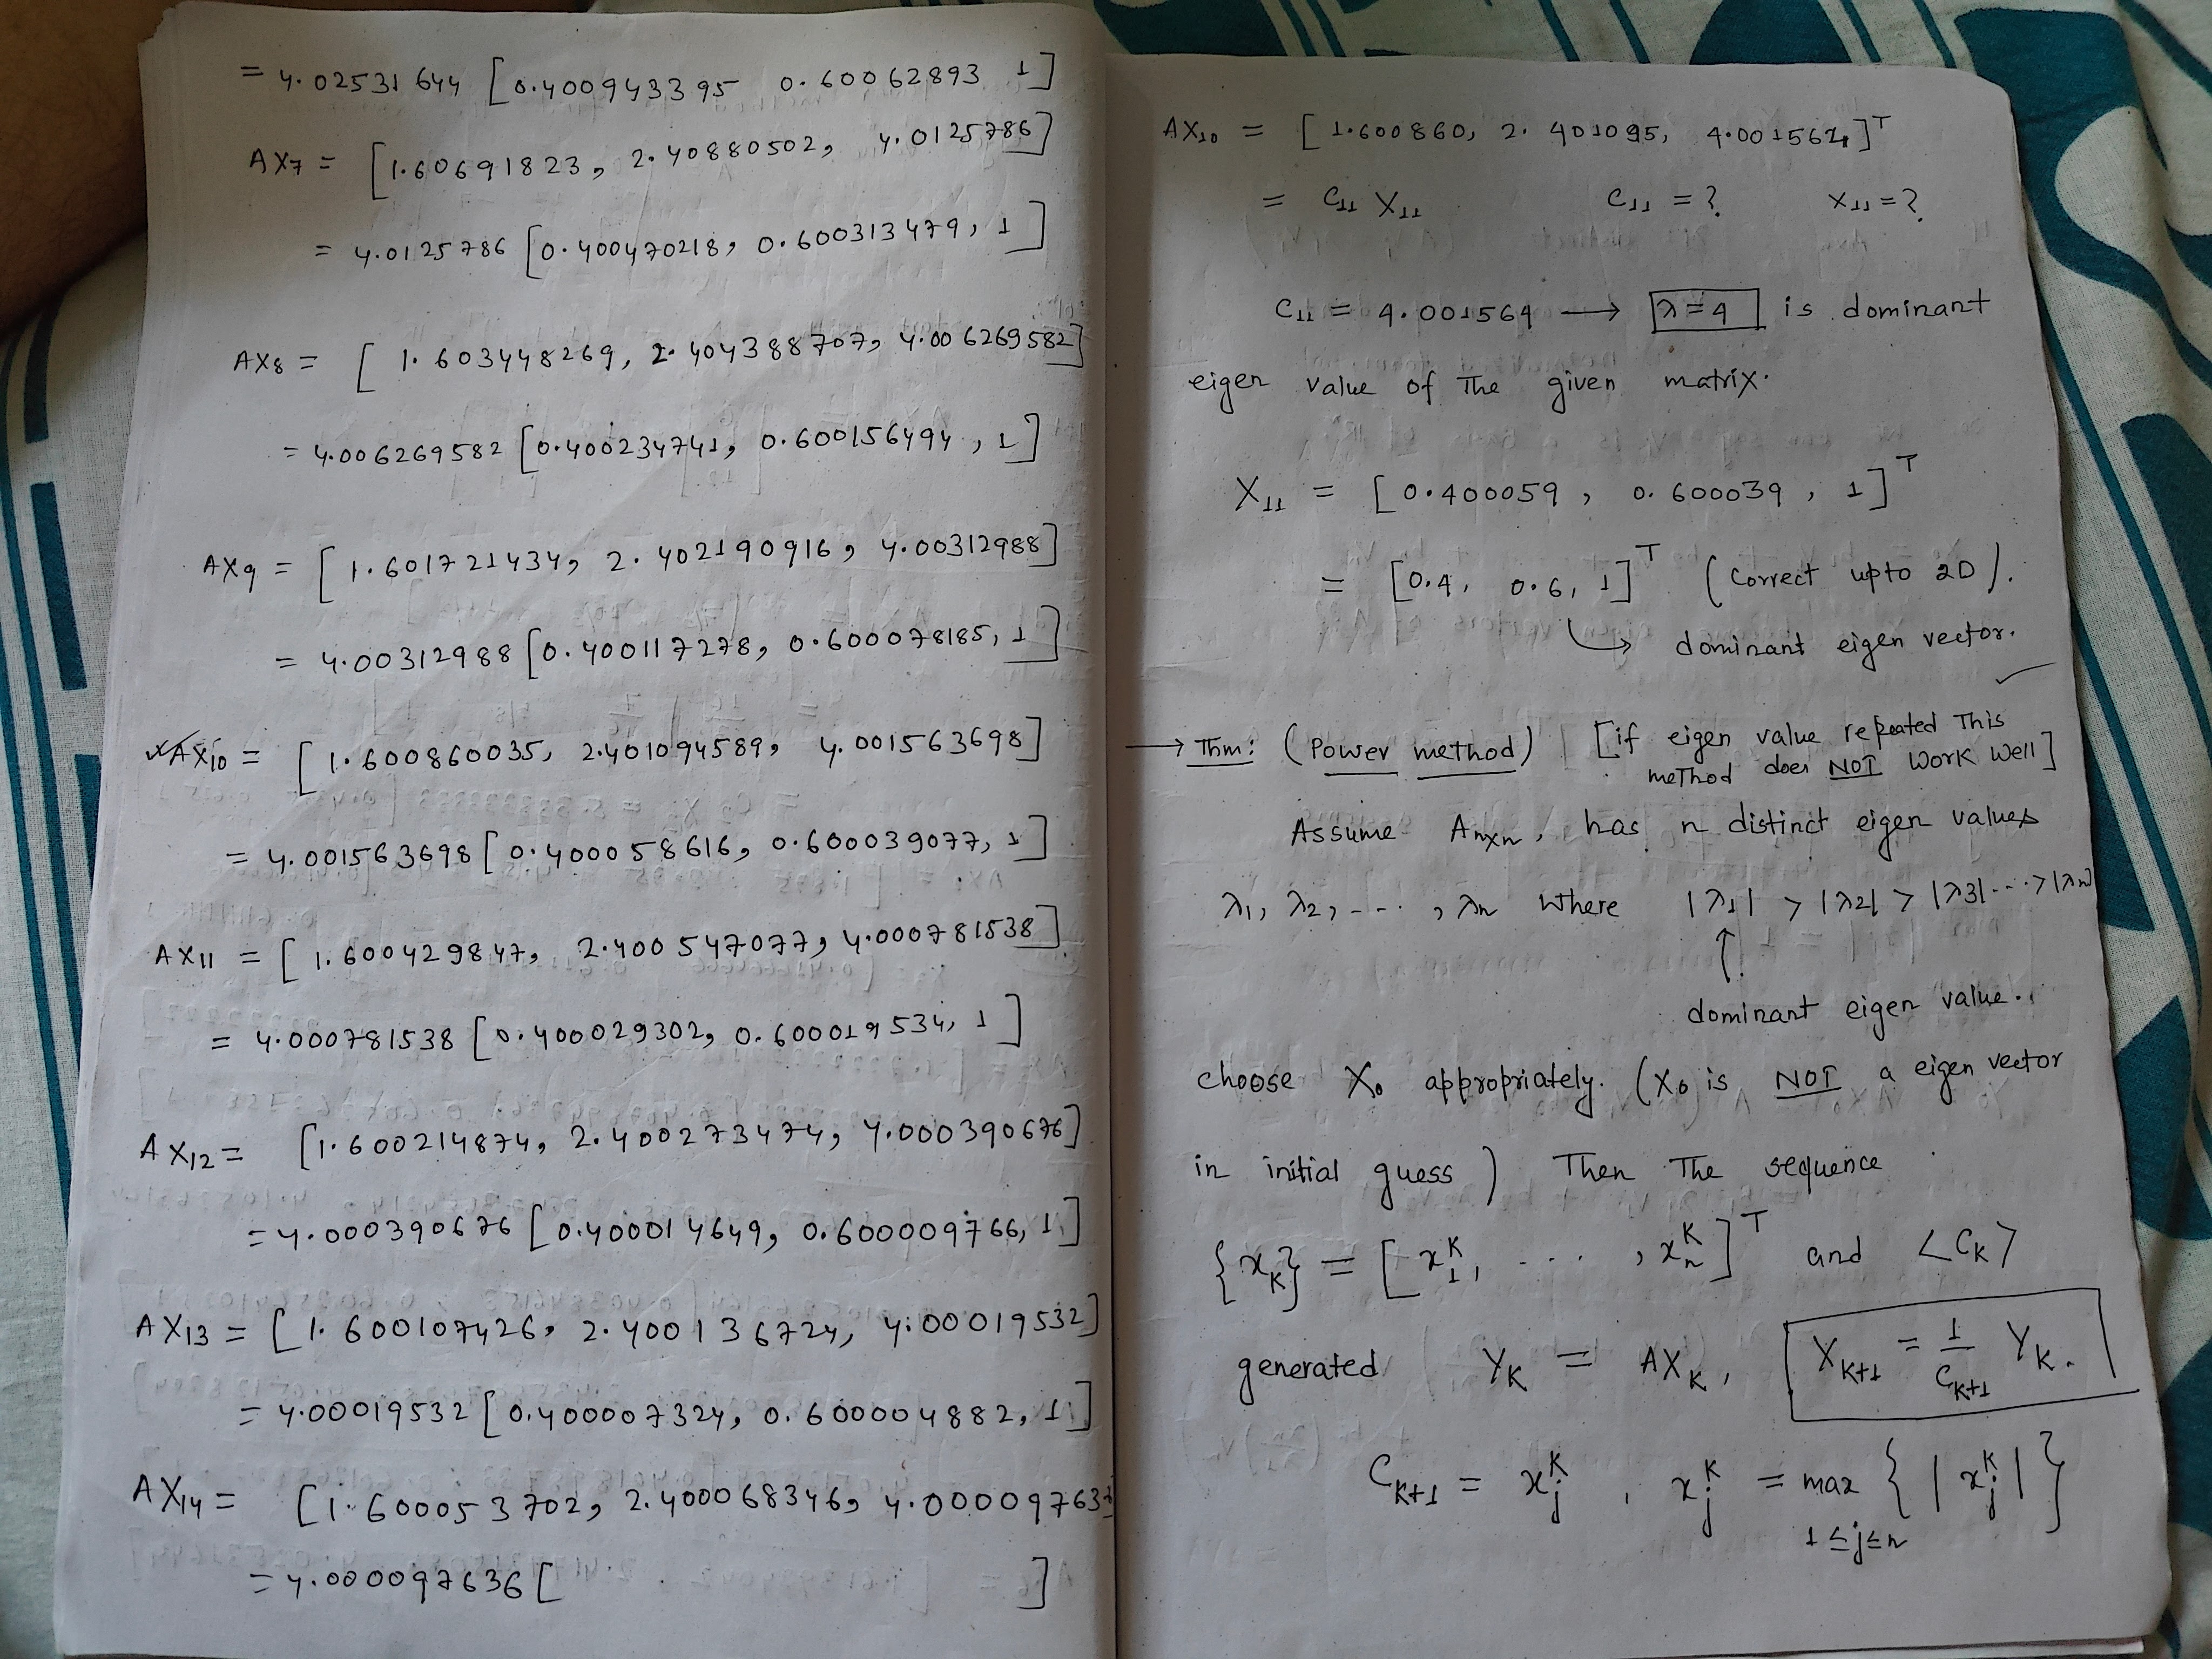 = 4.02531644 [0.4009433395 0.60062893 1]
AX7 = [1.60691823, 2.40880502, 4.0125786]
= 4.0125786 [0.400470218, 0.600313479, 1]
AX8 = [1.603448269, 2.404388707, 4.006269582]
= 4.006269582 [0.400234741, 0.600156494, 1]
AX9 = [1.601721434, 2.402190916, 4.00312988]
= 4.00312988 [0.400117278, 0.600078185, 1]
AX10 = [1.600860035, 2.401094589, 4.001563698]
= 4.001563698 [0.400058616, 0.600039077, 1]
AX11 = [1.600429847, 2.400547077, 4.000781538]
= 4.000781538 [0.400029302, 0.600019534, 1]
AX12 = [1.600214874, 2.400273474, 4.000390676]
= 4.000390676 [0.400014649, 0.600009766, 1]
AX13 = [1.600107426, 2.400136724, 4.00019532]
= 4.00019532 [0.400007324, 0.600004882, 1]
AX14 = [1.600053702, 2.400068346, 4.00009763
= 4.000097636 [ ]
AX10 = [1.600860, 2.401095, 4.001564]ᵀ
= C11 X11 C11 = ? X11 = ?
C11 = 4.001564 → λ = 4 is dominant
eigen value of The given matrix.
X11 = [0.400059, 0.600039, 1]ᵀ
= [0.4, 0.6, 1]ᵀ (Correct upto 2D).
↳ dominant eigen vector.
→ Thm: (Power method) [if eigen value repeated This
method does NOT Work Well]
Assume Anxn, has n distinct eigen values
λ1, λ2, ---- , λn Where |λ1| > |λ2| > |λ3| ---- > |λn|
↑
dominant eigen value.
choose X0 appropriately. (X0 is NOT a eigen vector
in initial guess) Then The sequence
{xK} = [x₁ᴷ, .... , xₙᴷ]ᵀ and <CK>
generated YK = AXK, XK+1 = 1/CK+1 YK.
CK+1 = xⱼᴷ , xⱼᴷ = max {|xⱼᴷ|}
1≤j≤n